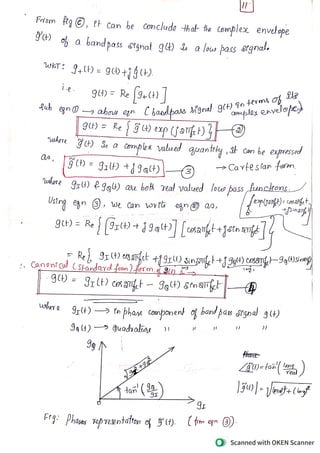 11
From Fig (c), it can be conclude that the complex envelope
g̃(t) of a bandpass signal g(t) is a low pass signal.
WKT: g₊(t) = g(t) + j ĝ(t).
i.e. g(t) = Re [g₊(t)]
Sub eqn ① → above eqn (bandpass signal g(t) in terms of its complex envelope)
g(t) = Re { g̃(t) exp (j2πfct) } → ②
where g̃(t) is a complex valued quantity, it can be expressed
as, g̃(t) = gI(t) + j gQ(t) → ③ → Cartesian form.
where gI(t) & gQ(t) are both real valued low pass functions.
Using eqn ③, we can write eqn ② as, { exp(j2πfct) = cos2πfct + j sin2πfct }
g(t) = Re { [gI(t) + j gQ(t)] [cos2πfct + j sin2πfct] }
= Re { gI(t) cos2πfct + j gI(t) sin2πfct + j gQ(t) cos2πfct - gQ(t) sin2πfct }
∴ Canonical (standard form) form
g(t) = gI(t) cos2πfct - gQ(t) sin2πfct → ④
where gI(t) → In phase component of band pass signal g(t)
gQ(t) → quadrature " " " " "
gQ
√gI²+gQ²
tan⁻¹(gQ/gI)
gI
∠g̃(t) = tan⁻¹(imag/real)
|g̃(t)| = √(real)²+(imag)²
Fig: Phasor representation of g̃(t). (from eqn ③).
Scanned with OKEN Scanner